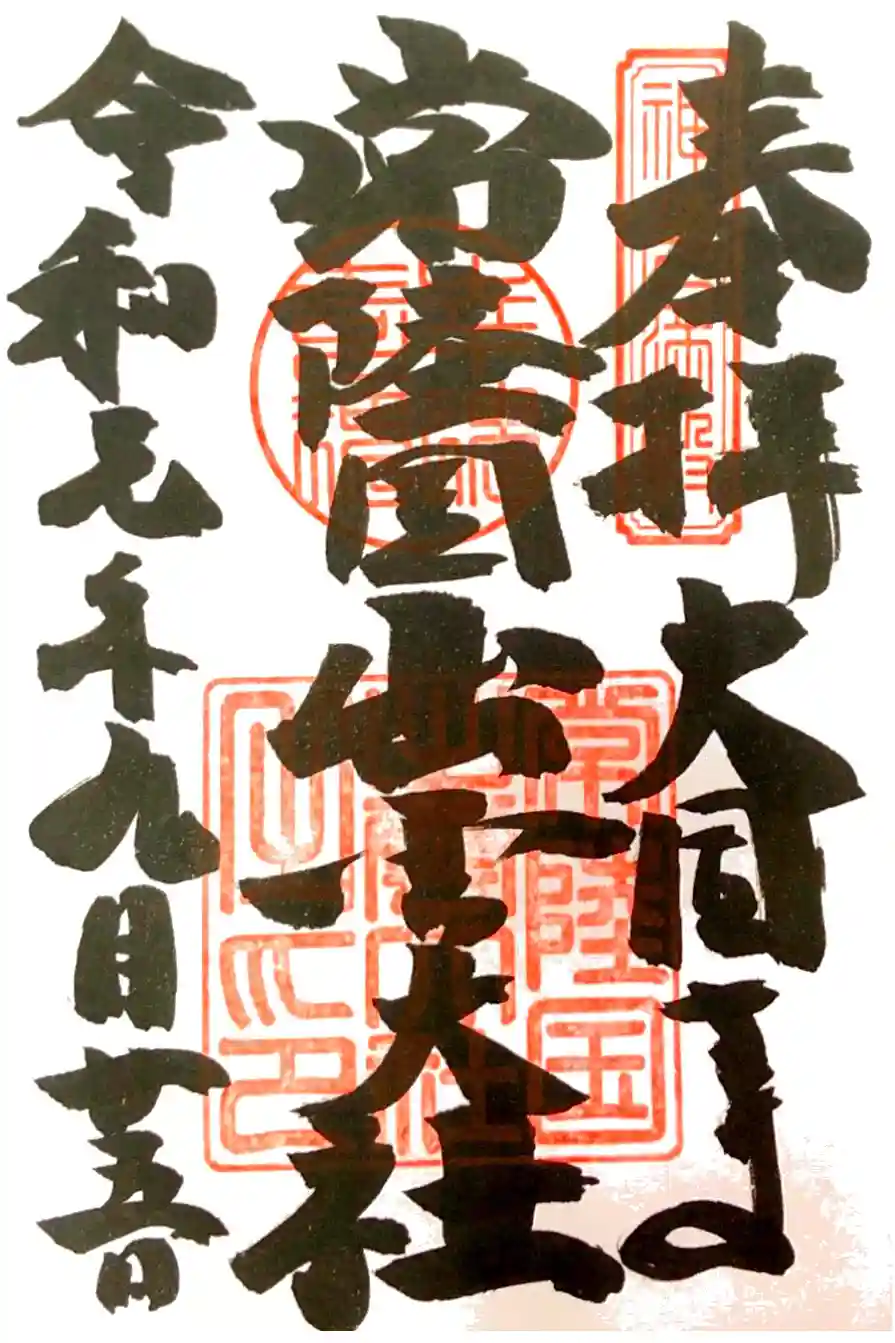 奉拝 大国
常陸国出雲大社
令和元年九月廿五日
常陸国
出雲大社
印